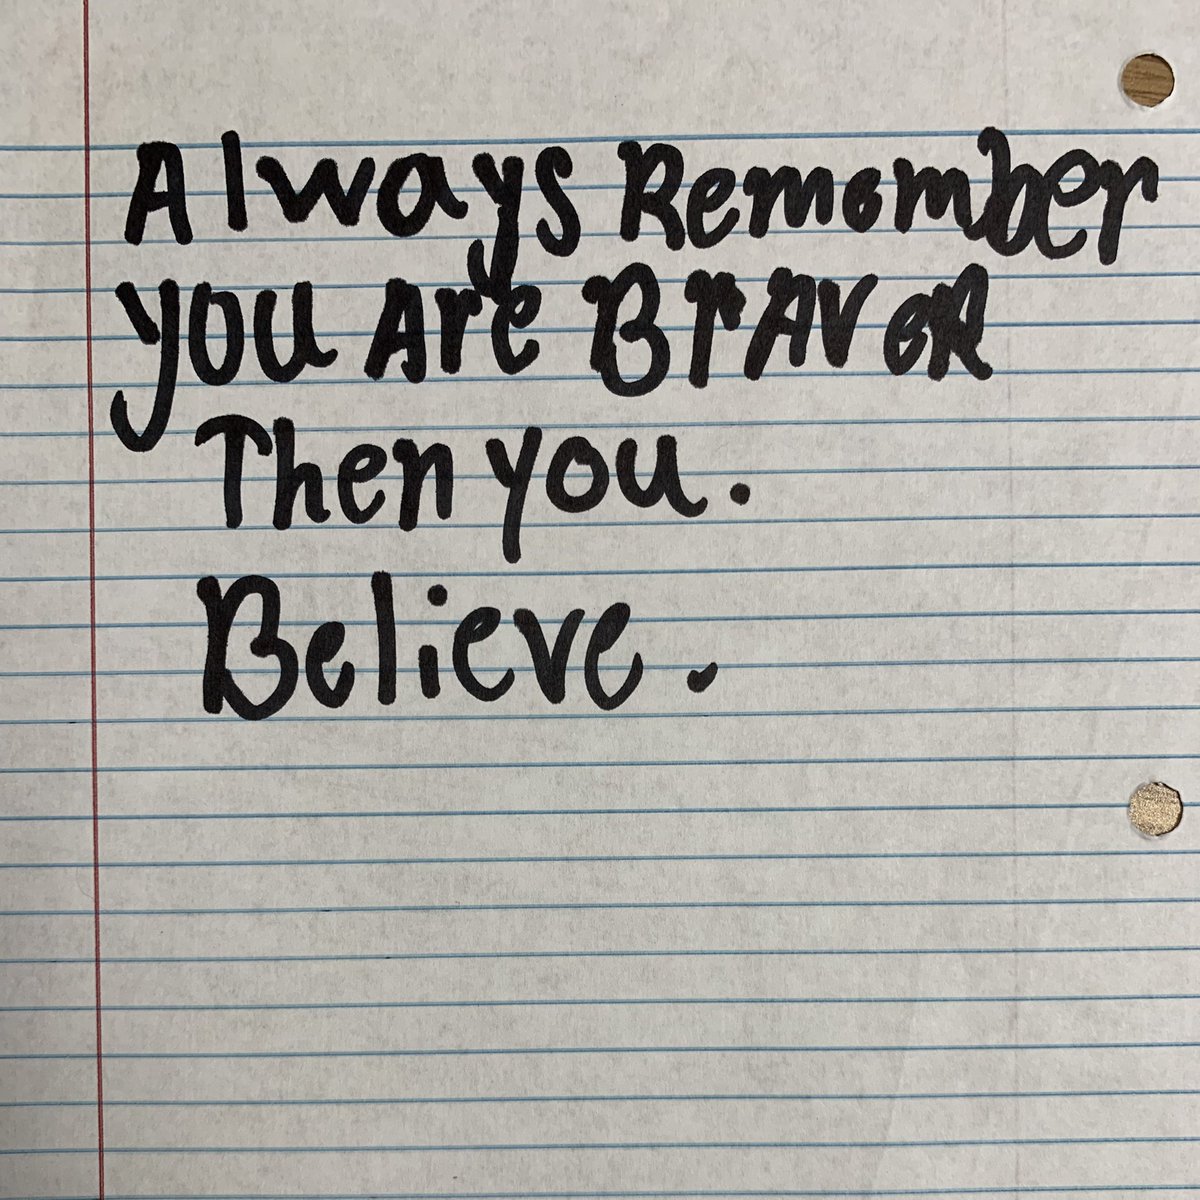 Always Remember
you Are BrAVeR
Then you.
Believe.